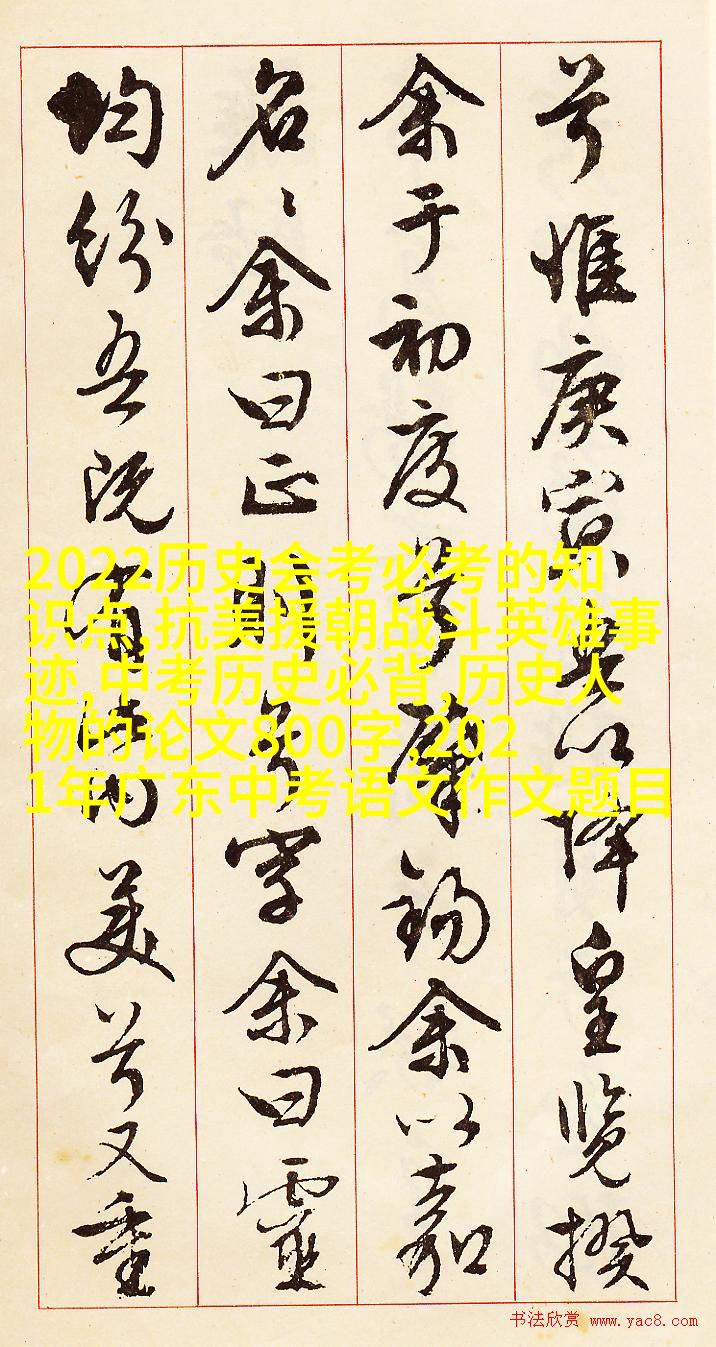 兮惟庚寅吾以降皇覽揆
余于初度兮肇錫余以嘉
名〻余曰正則兮字余曰靈
均紛吾既有此内美兮又重
2022历史会考必考的知
识点,抗美援朝战斗英雄事
迹,中考历史必背,历史人
物的论文800字,202
1年广东中考语文作文题目
书法欣赏 www.yac8.com